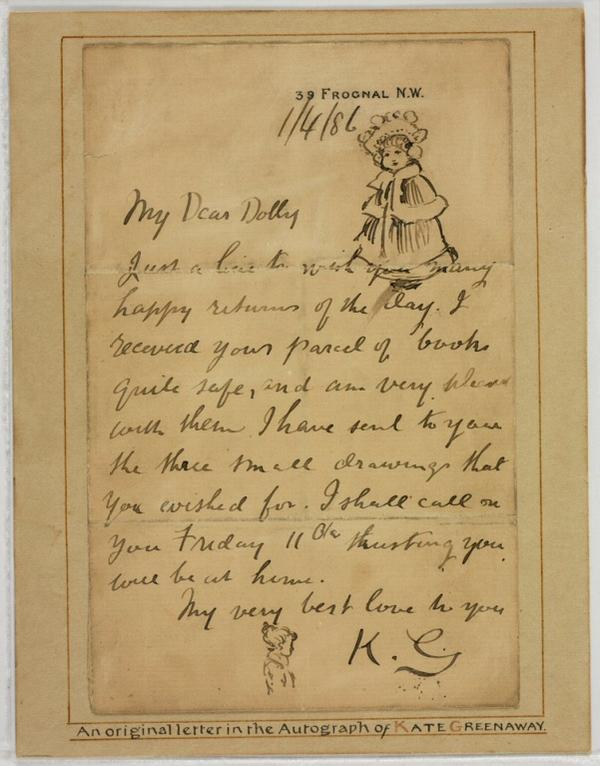 39 FROGNAL N.W.
1/4/86
My Dear Dolly
Just a line to wish you many
happy returns of the day. I
received your parcel of books
quite safe, and am very pleased
with them I have sent to you
the three small drawings that
you wished for. I shall call on
you Friday 11 trusting you
will be at home.
My very best love to you
K. G
An original letter in the Autograph of KATE GREENAWAY.